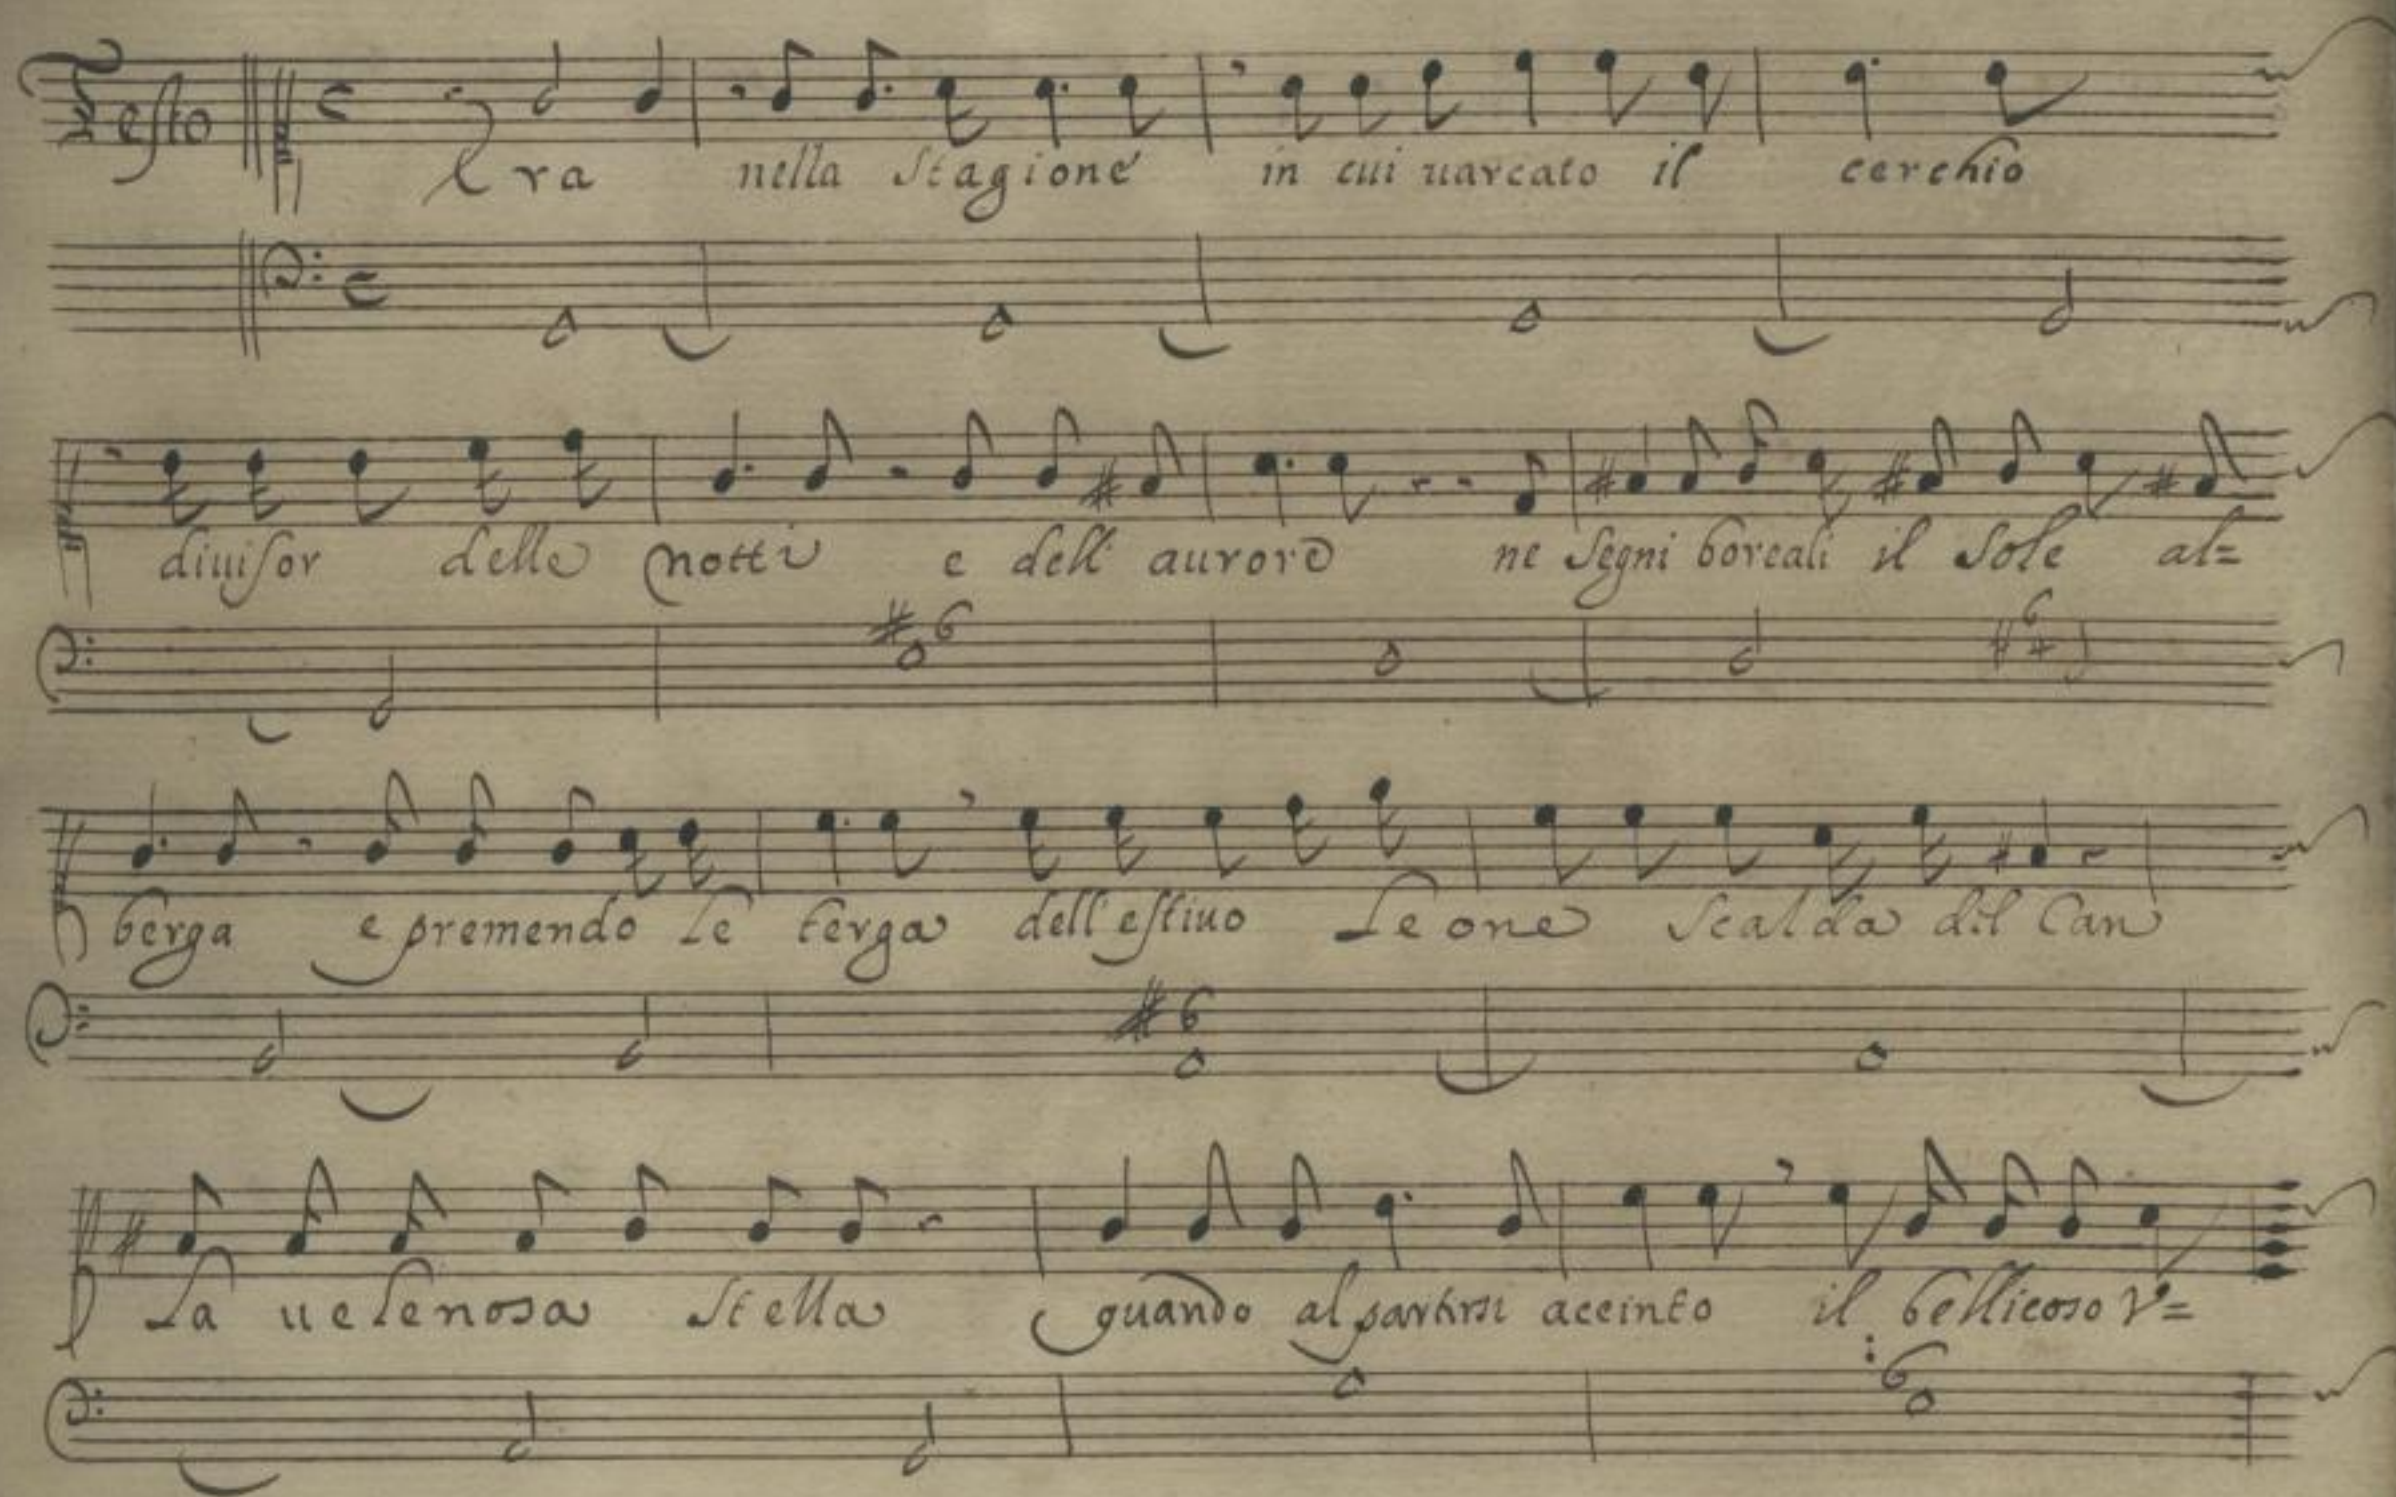 Testo Era nella stagione in cui uarcato il cerchio
diuisor delle notti e dell' aurore ne segni boreali il sole al=
berga e premendo le terga dell' estiuo Leone scalda del Can
La uelenosa stella quando al partirsi accinto il bellicoso V=